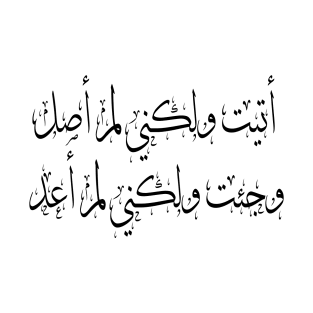 أتيت ولكني لم أصل
وجئت ولكني لم أعد